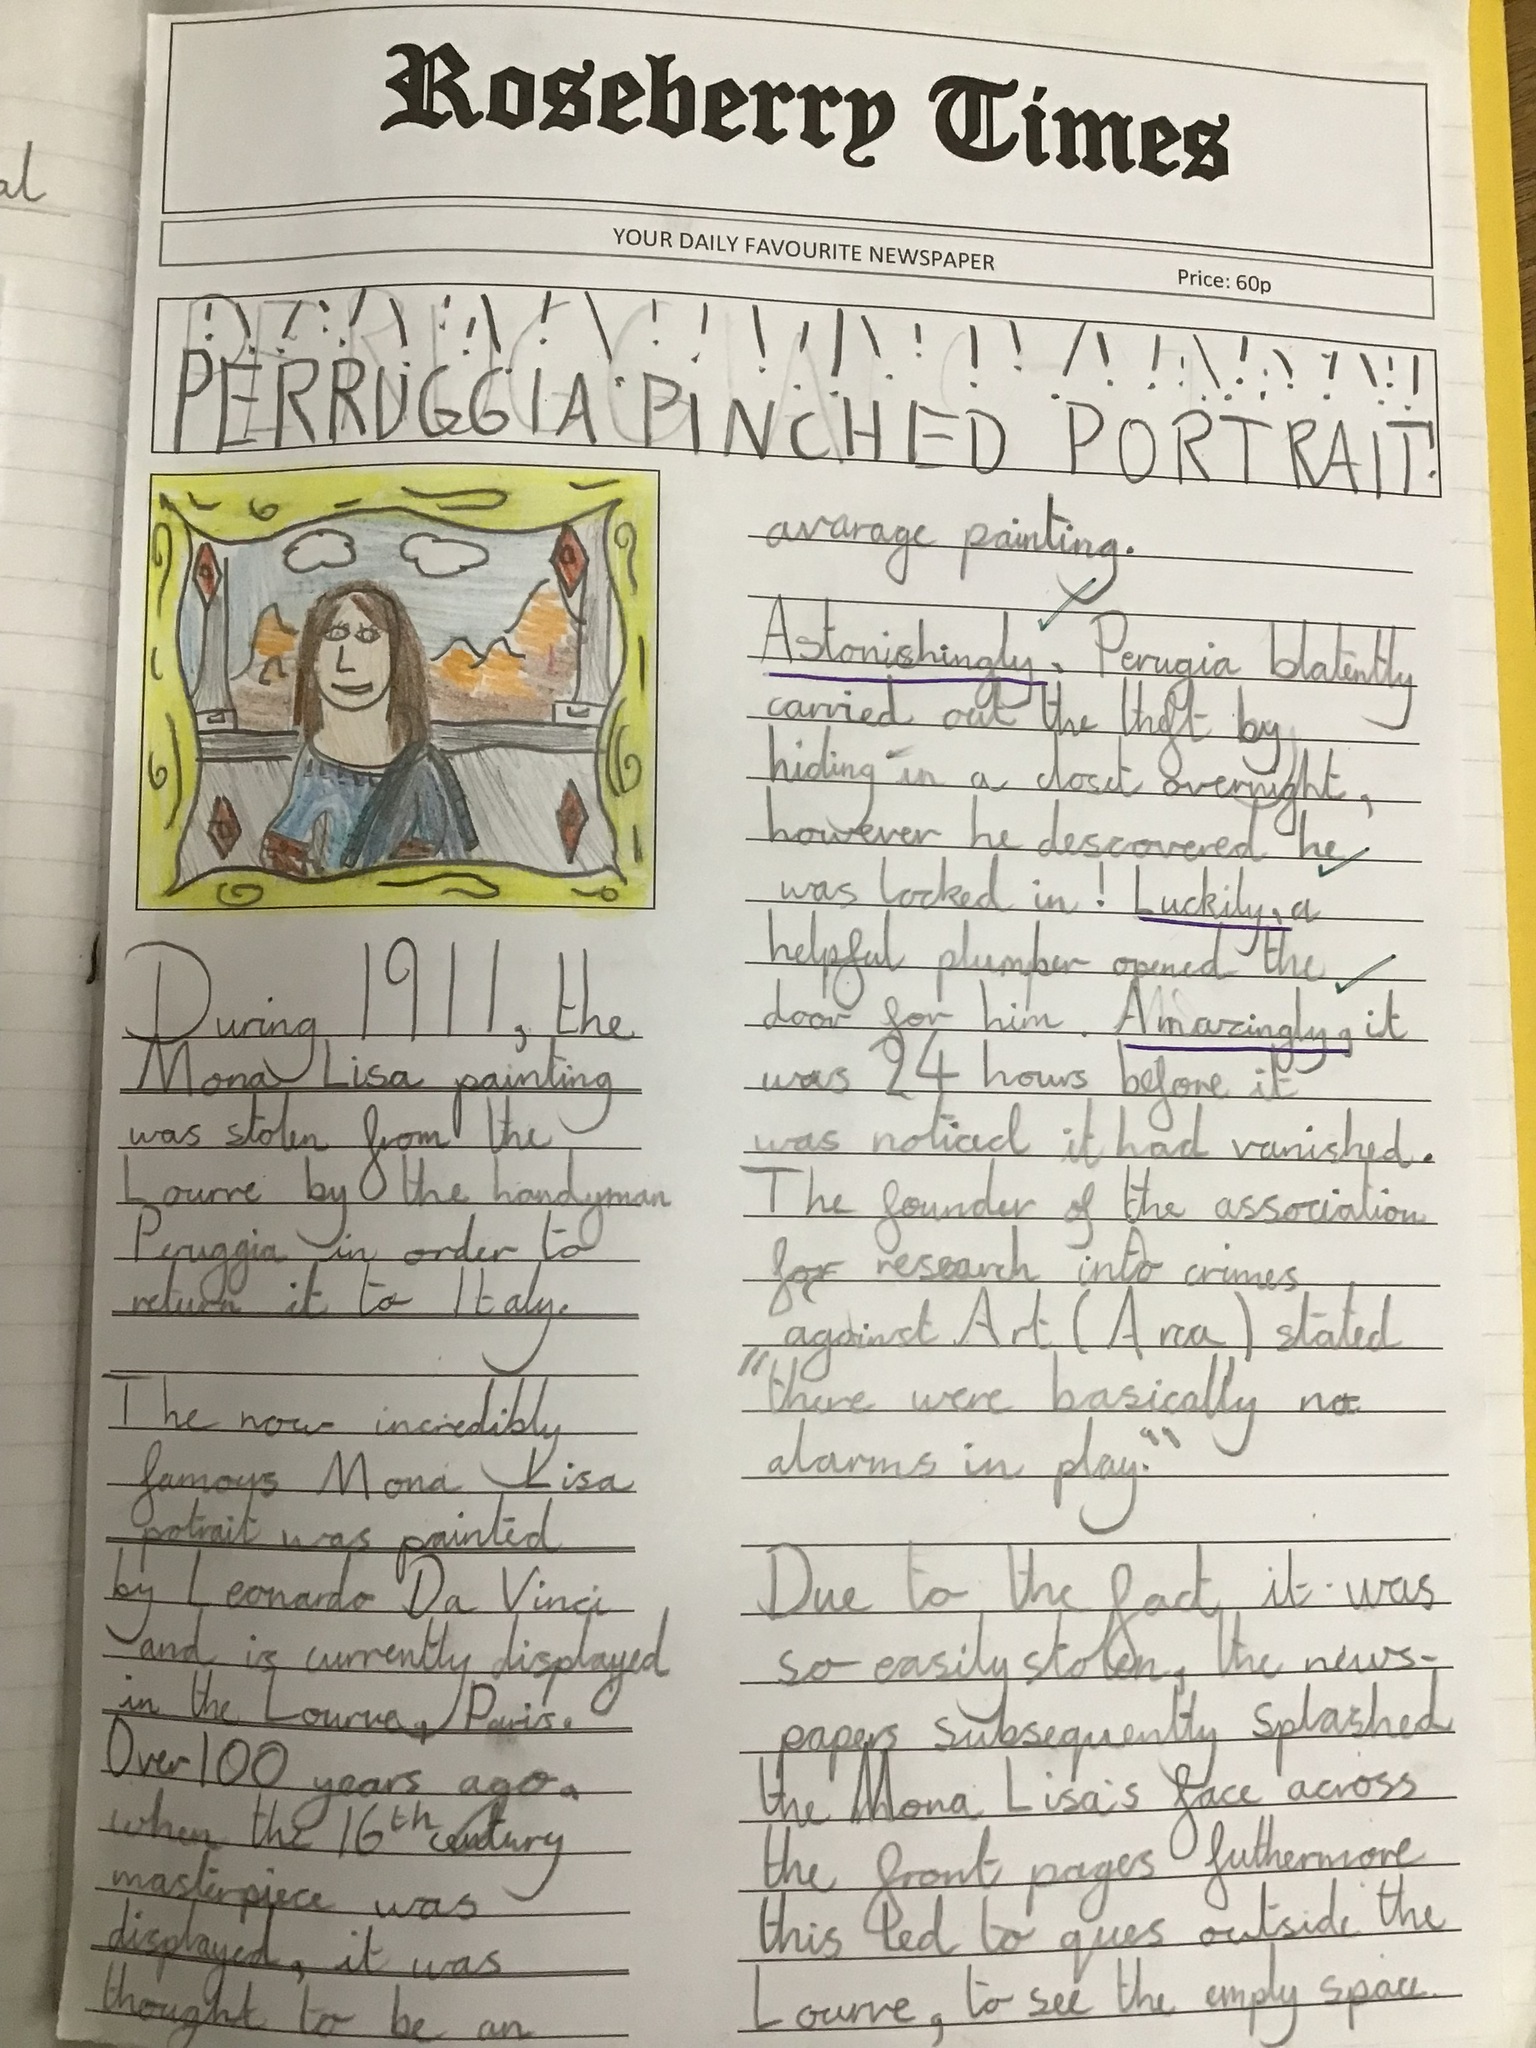 al
Roseberry Times
YOUR DAILY FAVOURITE NEWSPAPER
Price: 60p
PERRUGGIA PINCHED PORTRAIT!
During 1911, the
Mona Lisa painting
was stolen from the
Lourre by the handyman
Peruggia in order to
return it to Italy.
The now incredibly
famous Mona Lisa
potrait was painted
by Leonardo Da Vinci
and is currently displayed
in the Lourve, Paris.
Over 100 years ago,
when the 16th century
masterpiece was
displayed, it was
thought to be an
avarage painting.
Astonishingly, Perugia blatently
carried out the theft by
hiding in a closet overnight,
however he descovered he
was locked in! Luckily, a
helpful plumber opened the
door for him. Amazingly, it
was 24 hours before it
was noticed it had vanished.
The founder of the association
for research into crimes
against Art (Arca) stated
"there were basically no
alarms in play."
Due to the fact it was
so easily stolen, the news-
papers subsequently splashed
the Mona Lisa's face across
the front pages futhermore
this led to ques outside the
Lourre, to see the empy space.